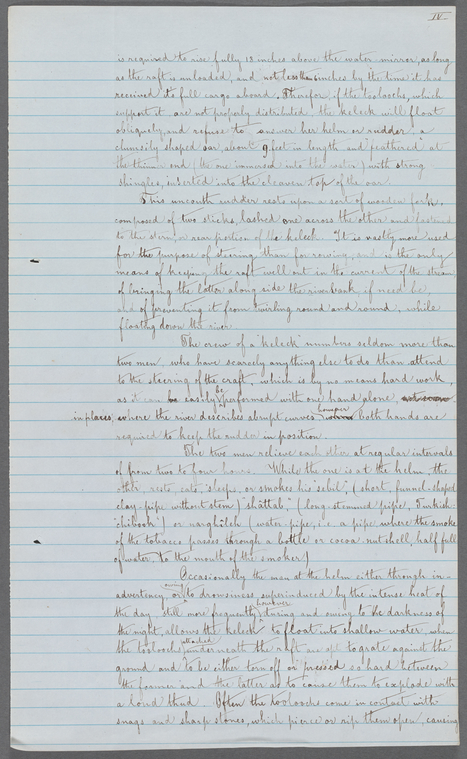 IV.
is required to rise fully 18 inches above the water mirror, as long
as the raft is unloaded, and not less than 6 inches by the time it has
received its full cargo aboard. Therefor, if the toolooche, which
support it, are not properly distributed, the keleck will float
obliquely, and refuse to answer her helm or rudder, a
clumsily shaped oar, about 9 feet in length and feathered at
the end (the one immersed into the water) with strong
shingles, inserted into the cleaven top of the oar.
This uncouth rudder rests upon a sort of wooden fork,
composed of two sticks, lashed one across the other and fastened
to the stern, or rear portion of the keleck. It is vastly more used
for the purpose of steering than for rowing, and is the only
means of keeping the raft well out in the current of the stream,
of bringing the latter along side the riverbank, if need be,
and of preventing it from twirling round and round, while
floating down the river.
The crew of a "keleck" numbers seldom more than
two men, who have scarcely anything else to do than attend
to the steering of the craft, which is by no means hard work,
as it can be easily performed with one hand alone
in places, where the river describes abrupt curves however both hands are
required to keep the rudder in position.
The two men relieve each other at regular intervals
of from two to four hours. While the one is at the helm, the
other rests, eats, sleeps, or smokes his "sebel", (short, funnel-shaped
clay-pipe without stem) "shattab," (long stemmed pipe, Turkish
"chibook") or narghileh (water-pipe, i.e. a pipe, where the smoke
of the tobacco passes through a bottle or cocoa nutshell, half full
of water, to the mouth of the smoker.)
Occasionally the man at the helm either through in-
advertency, or owing to drowsiness, superinduced by the intense heat of
the day, still more frequently however during and owing to the darkness of
the night, allows the keleck to float into shallow water, when
the tooloochs attached underneath the raft are apt to grate against the
ground and to be either torn off or pressed so hard between
the former and the latter as to cause them to explode with
a loud thud. Often the tooloochs come in contact with
snags and sharp stones, which pierce or rip them open, causing